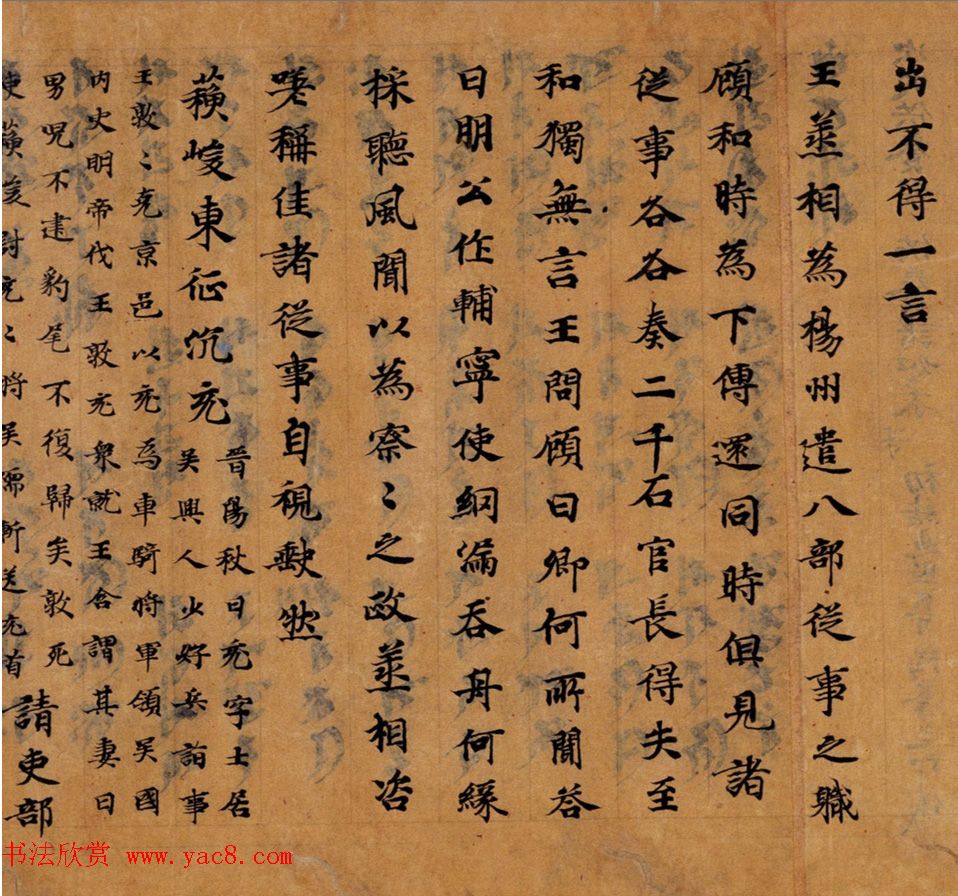 出不得一言
王蒸相為楊州遣八部從事之職
顧和時為下傳還同時俱見諸
從事各各奏二千石官長得失至
和獨無言王問顧曰卿何所聞荅
曰明公作輔寧使網漏吞舟何緣
採聽風聞以為察〻之政蒸相咨
嗟稱佳諸從事自視歎然
蘓峻東征沉充
晉陽秋曰充字士居
吴興人少好兵諂事
王敦〻克京邑以充為車騎將軍領吴國
内史明帝伐王敦充衆就王含謂其妻曰
男兒不建豹尾不復歸矣敦死
使蘓峻討充〻將吴儒斬送充首
請吏部
书法欣赏 www.yac8.com